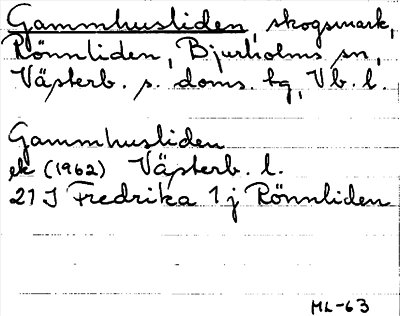 Gammhusliden, skogsmark,
Rönnliden, Bjurholms sn,
Västerb. s. doms. tg, Vb. l.
Gammhusliden
ek (1962) Västerb. l.
21 J Fredrika 1 j Rönnliden
ML-63